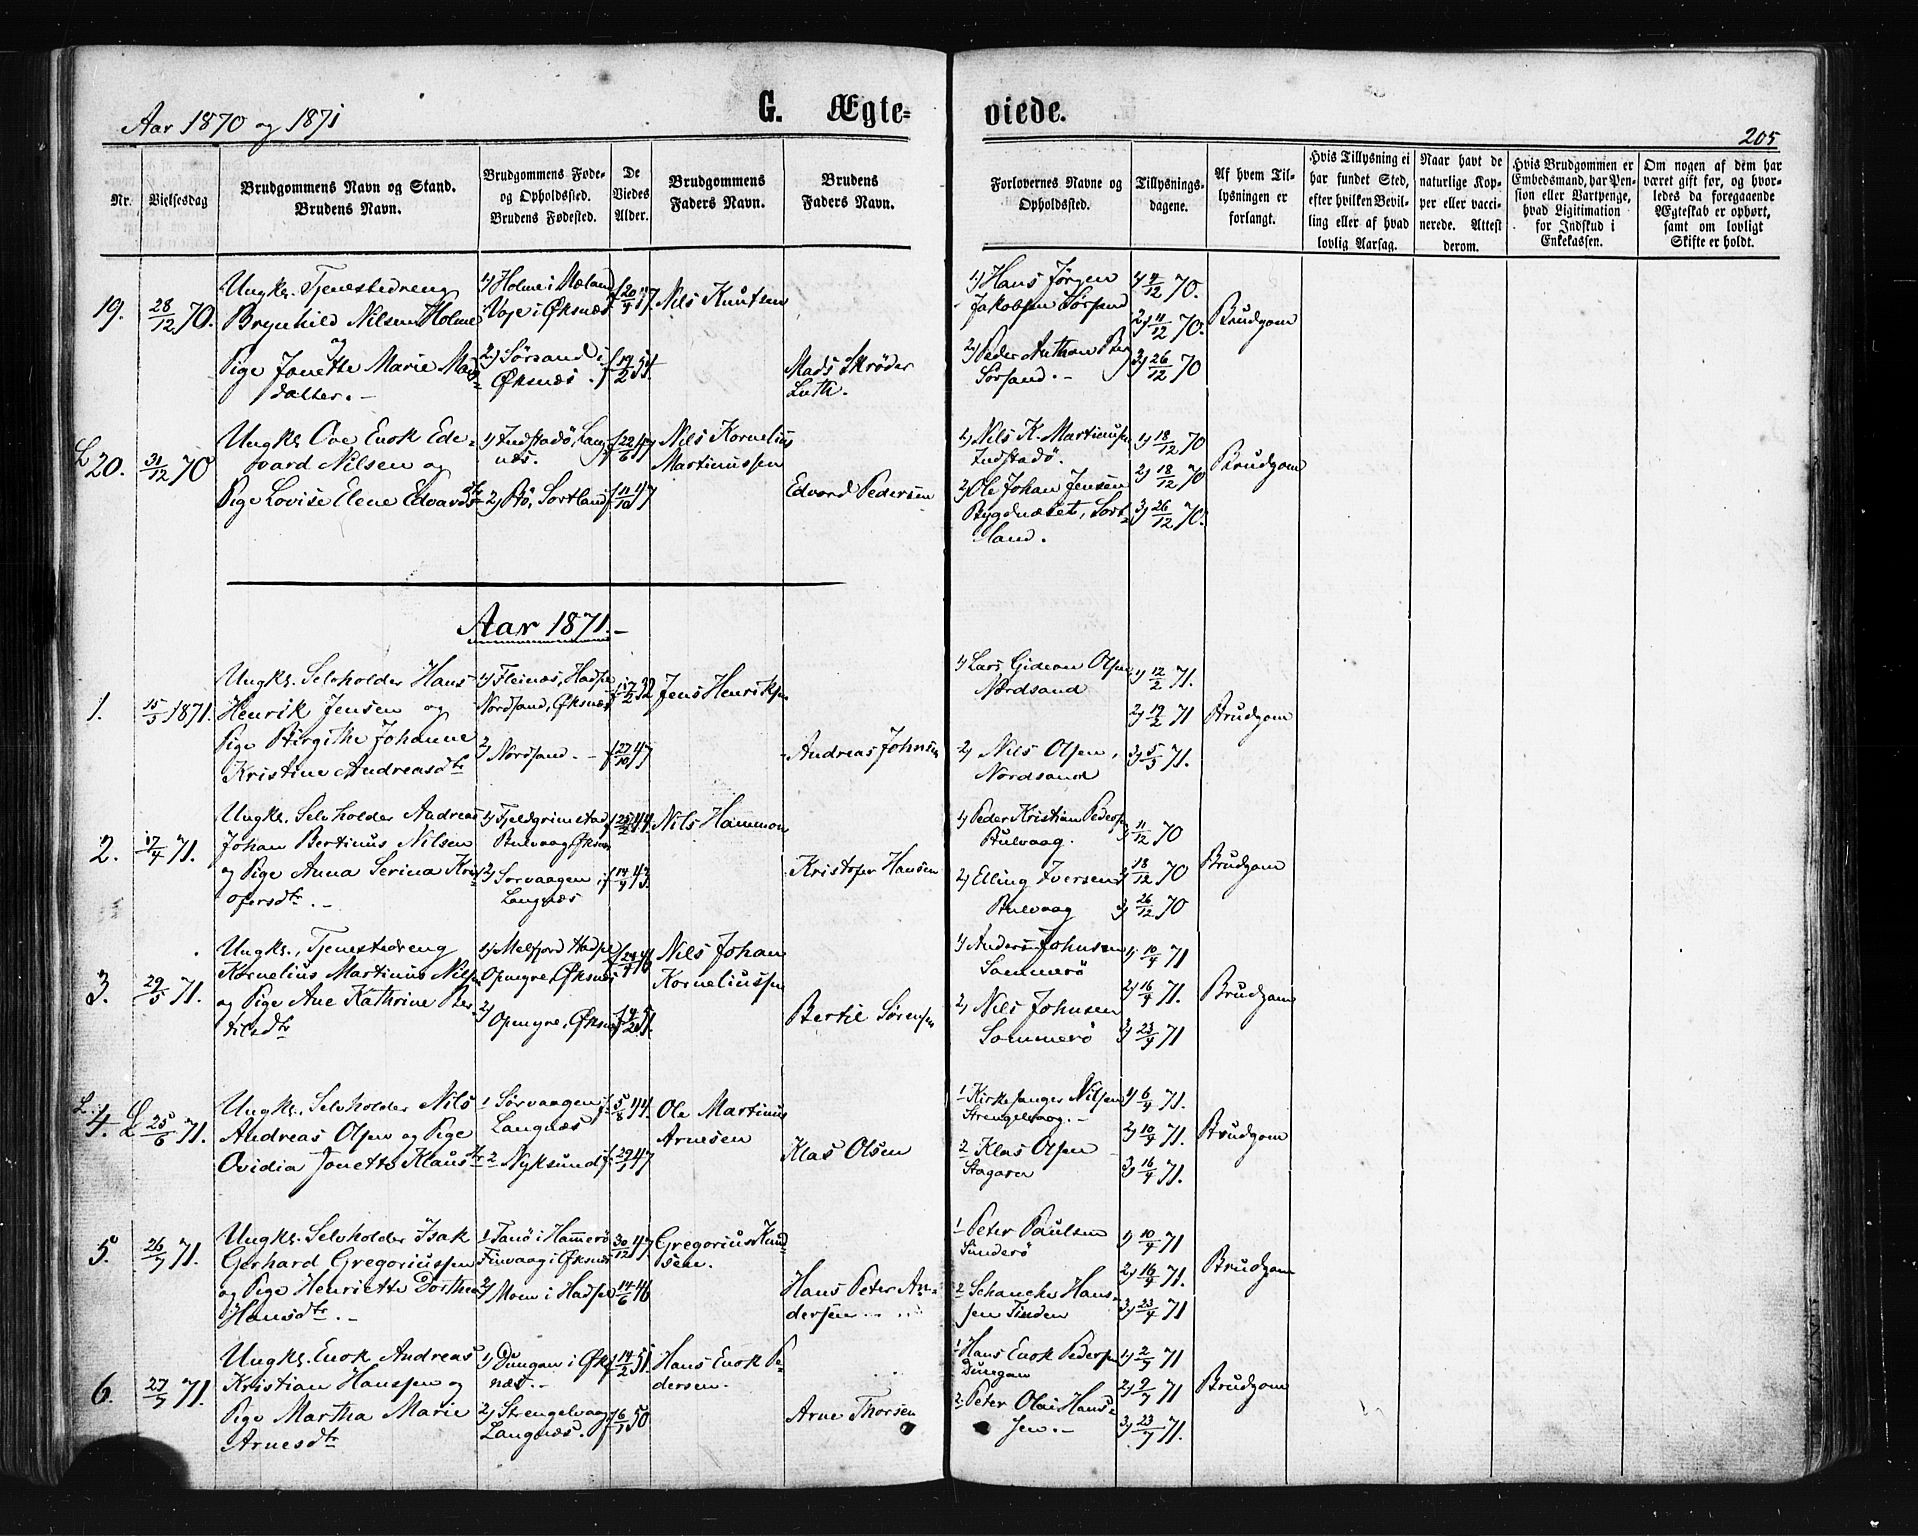 Aar 1870 og 1871
G. Ægte-
viede.
205
Nr.
Vielsesdag
Brudgommens Navn og Stand.
Brudens Navn.
Brudgommens Føde-
og Opholdssted.
Brudens Fødested.
De
Viedes
Alder.
Brudgommens
Faders Navn.
Brudens
Faders Navn.
Forlovernes Navne og
Opholdssted.
Tillysnings-
dagene.
Af hvem Til-
lysningen er
forlangt.
Hvis Tillysning ei
har fundet Sted,
efter hvilken Bevil-
ling eller af hvad
lovlig Aarsag.
Naar havt de
naturlige Kop-
per eller vacci-
nerede. Attest
derom.
Hvis Brudgommen er
Embedsmand, har Pen-
sion eller Vartpenge,
hvad Ligitimation
for Indskud i
Enkekassen.
Om nogen af dem har
været gift før, og hvor-
ledes da foregaaende
Ægteskab er ophørt,
samt om lovligt
Skifte er holdt.
19.
28/12 70.
Ungkl. Tjenestedreng
Brynhild Nilsen Holme
og
Pige Janette Marie Mads
datter.
1) Holme i Mæland
Vaje i Øksnæs
2) Sørsand i
Øksnæs.
f. 20/4 47.
f. 19/2 54.
Nils Knutsen
Mads Skrøder
Luth.
1) Hans Jørgen
Jakobsen Sørsand
2) Peder Anthon
Sørsand.
1) 4/12 70.
2) 11/12 70.
3) 26/12 70
Brudgom
L 20.
31/12 70
Ungkl. Ove Enok Ede-
vard Nilsen og
Pige Lovise Elene Edvardsdtr
1) Indstadø, Lang-
næs.
2) Bø, Sortland
f. 22/6 47
f. 11/10 47
Nils Kornelius
Martinussen
Edvard Pedersen
1) Nils K. Martinussen
Indstadø.
2) Ole Johan Jensen
Bygdnæset, Sort-
land.
1) 18/12 70
2) 18/12 70
3) 26/12 70.
Brudgom
Aar 1871.
1.
15/5 1871.
Ungkl. Selvholder Hans
Henrik Jensen og
Pige Birgithe Johanne
Kristine Andreasdtr
1) Fleinæs, Hadsel
Nordsand, Øksnæs
2) Nordsand.
f. 17/2 32
f. 27/10 47
Jens Henriksen
Andreas Johnsen
1) Lars Gidean Olsen
Nordsand
2) Nils Olsen,
Nordsand
1) 12/2 71.
2) 19/2 71
3) 5/5 71.
Brudgom
2.
17/4 71.
Ungkl. Selvholder Andreas
Johan Bertinus Nilsen
og Pige Anna Serina Krist-
ofersdtr.
1) Fjeldgrimstad
Bulvaag Øksnæs
2) Sorvaagen i
Langnæs
f. 25/2 44.
f. 14/9 43.
Nils Hammon
Kristofer Hansen
1) Peder Kristian Pedersen
Bulvaag.
2) Elling Iversen
Bulvaag
1) 11/12 70
2) 18/12 70
3) 26/12 70
Brudgom
3.
29/5 71.
Ungkl., Tjenestedreng
Kornelius Martinus Nilsen
og Pige Ane Kathrine Ber-
tilsdtr
1) Melfjord Hadsel
Opmyre, Øksnæs
2)
Opmyre, Øksnæs
Nils Johan
Korneliussen
Bertil Sørensen
1) Anders Johnsen
Sommerø
2) Nils Johnsen
Sommerø
1) 10/4 71
2) 16/4 71.
3) 23/4 71
Brudgom
L. 4. L
25/6 71.
Ungkl. Selvholder Nils
Andreas Olsen og Pige
Ovidia Janette Klausdtr
1 Sørvaagen i
Langnæs
2 Nyksund
f. 5/8 44.
f. 29/1 47
Ole Martinus
Arnesen
Klas Olsen
1 Kirkesanger Nilsen
Strengelvaag.
2 Klas Olsen
Stagaren
1) 6/4 71.
2) 10/4 71.
3) 16/4 71.
Brudgom
5.
26/7 71.
Ungkl. Selvholder Isak
Gerhard Gregoriussen
og Pige Henriette Dorthea
Hansdtr.
1 Tanø i Hammerø
Finvaag i Øksnæs
2) Moen i Hadsel
30/12 47.
14/6 46
Gregorius Knud-
sen.
Hans Peter An-
dersen
1 Peter Paulsen
Tinderø
2 Schanche Hans-
sen Tinden
1) 10/4 71
2) 16/4 71.
3) 23/4 71
Brudgom
6.
27/7 71.
Ungkl. Enok Andreas
Kristian Hanssen og
Pige Martha Marie
Arnesdtr
1) Dungan i Øks-
næs.
2) Strengelvaag
Langnæs.
f. 14/2 51.
f. 6/1 50
Hans Enok Pe-
dersen.
Arne Thorsen
1 Hans Enok Pedersen
Dungan
2 Peter Olai Hans-
sen.
1) 2/7 71
2) 9/7 71
3) 23/7 71.
Brudgom